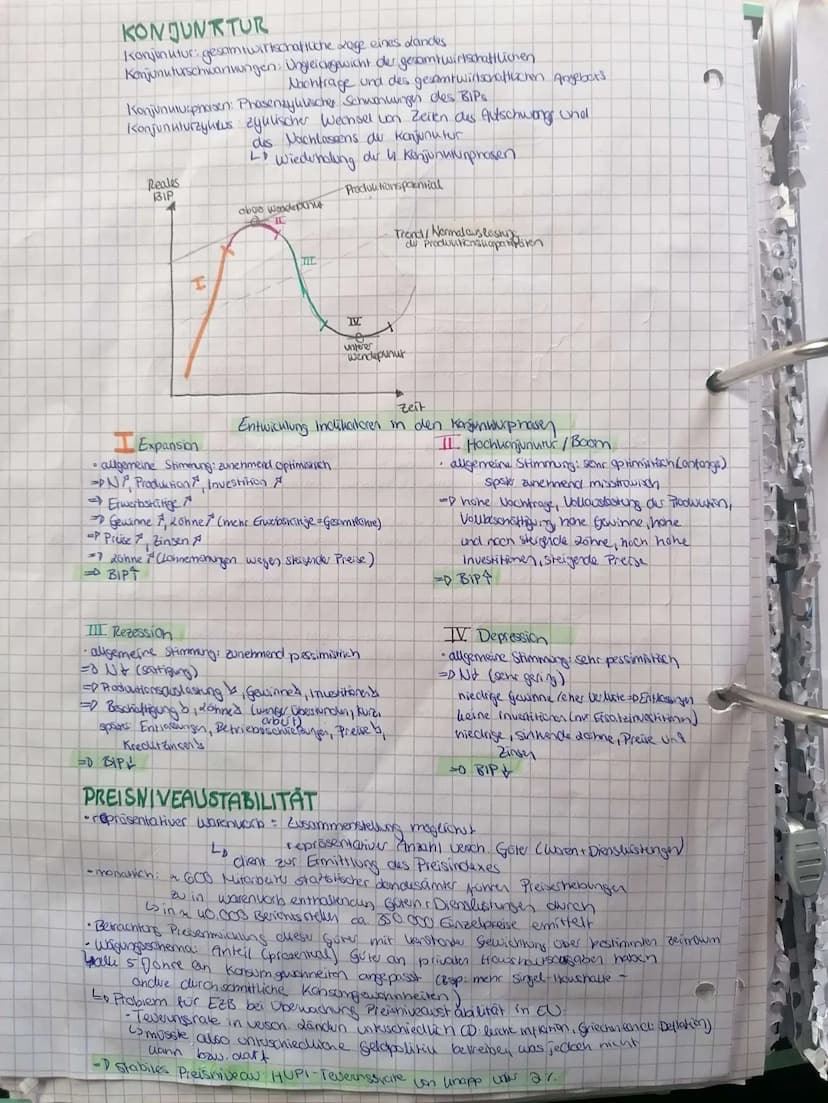 KONJUNKTUR
Konjunktur: gesamtwirtschaftliche Lage eines Landes
Konjunkturschwankungen: Ungleichgewicht der gesamtwirtschaftlichen
Nachfrage und des gesamtwirtschaftlichen Angebots
Konjunkturphasen: Phasen zyklischer Schwankungen des BIPs
Konjunkturzyklus: zyklischer Wechsel von Zeiten des Aufschwungs und
des Nachlassens der Konjunktur
↳ Wiederholung der 4 Konjunkturphasen
Reales
BIP
Produktionspotential
oberer Wendepunkt
II
Trend/Normalauslastung
der Produktionskapazitäten
III
I
IV
unterer
Wendepunkt
Zeit
Entwicklung Indikatoren in den Konjunkturphasen
I Expansion
• allgemeine Stimmung: zunehmend optimistisch
⇒ N↗, Produktion↗, Investition↗
⇒ Erwerbstätige↗
⇒ Gewinne↗, Löhne↗ (mehr Erwerbstätige =
⇒ Preise↗, Zinsen↗
⇒ Löhne↗ (wegen steigender Preise)
⇒ BIP↑
II Hochkonjunktur/Boom
• allgemeine Stimmung: sehr optimistisch (anfangs)
später zunehmend misstrauisch
⇒ hohe Nachfrage, Vollauslastung der Produktion,
Vollbeschäftigung, hohe Gewinne, hohe
und noch steigende Löhne, noch hohe
Investitionen, steigende Preise
⇒ BIP↑
III Rezession
• allgemeine Stimmung: zunehmend pessimistisch
⇒ N↓ (Sättigung)
⇒ Produktionsauslastung↘, Gewinne↘, Investitionen↘
⇒ Beschäftigung↘, Löhne↘ (weniger Überstunden, Kurz-
arbeit)
später Entlassungen, Betriebsschließungen, Preise↘,
Kreditzinsen↘
⇒ BIP↓
IV Depression
• allgemeine Stimmung: sehr pessimistisch
⇒ N↓ (sehr gering)
niedrige Gewinne/eher Verluste ⇒ Entlassungen
keine Investitionen (nur Ersatzinvestitionen)
niedrige, sinkende Löhne, Preise und
Zinsen
⇒ BIP↓
PREISNIVEAUSTABILITÄT
• repräsentativer Warenkorb = Zusammenstellung möglichst
repräsentativer Anzahl versch. Güter (Waren + Dienstleistungen)
↳ dient zur Ermittlung des Preisindexes
- monatlich: ≈ 600 Mitarbeiter statistischer Landesämter führen Preiserhebungen
zu in Warenkorb enthaltenen Gütern + Dienstleistungen durch
↳ in ≈ 40.000 Berichtsstellen ca. 350 000 Einzelpreise ermittelt
• Betrachtung Preisentwicklung dieser Güter mit konstanter Gewichtung über bestimmten Zeitraum
- Wägungsschema: Anteil (prozentual) Güter an privaten Haushaltsausgaben haben
↳ alle 5 Jahre an Konsumgewohnheiten angepasst (Bsp: mehr Singel-Haushalte -
andre durchschnittliche Konsumgewohnheiten)
↳ Problem für EZB bei Überwachung Preisniveaustabilität in EU
- Teuerungsrate in versch. Ländern unterschiedlich (D: Inflation, Griechenland: Deflation)
↳ müsste also unterschiedliche Geldpolitik betreiben, was jedoch nicht
kann bzw. darf
→ stabiles Preisniveau: HVPI-Teuerungsrate von knapp unter 2%